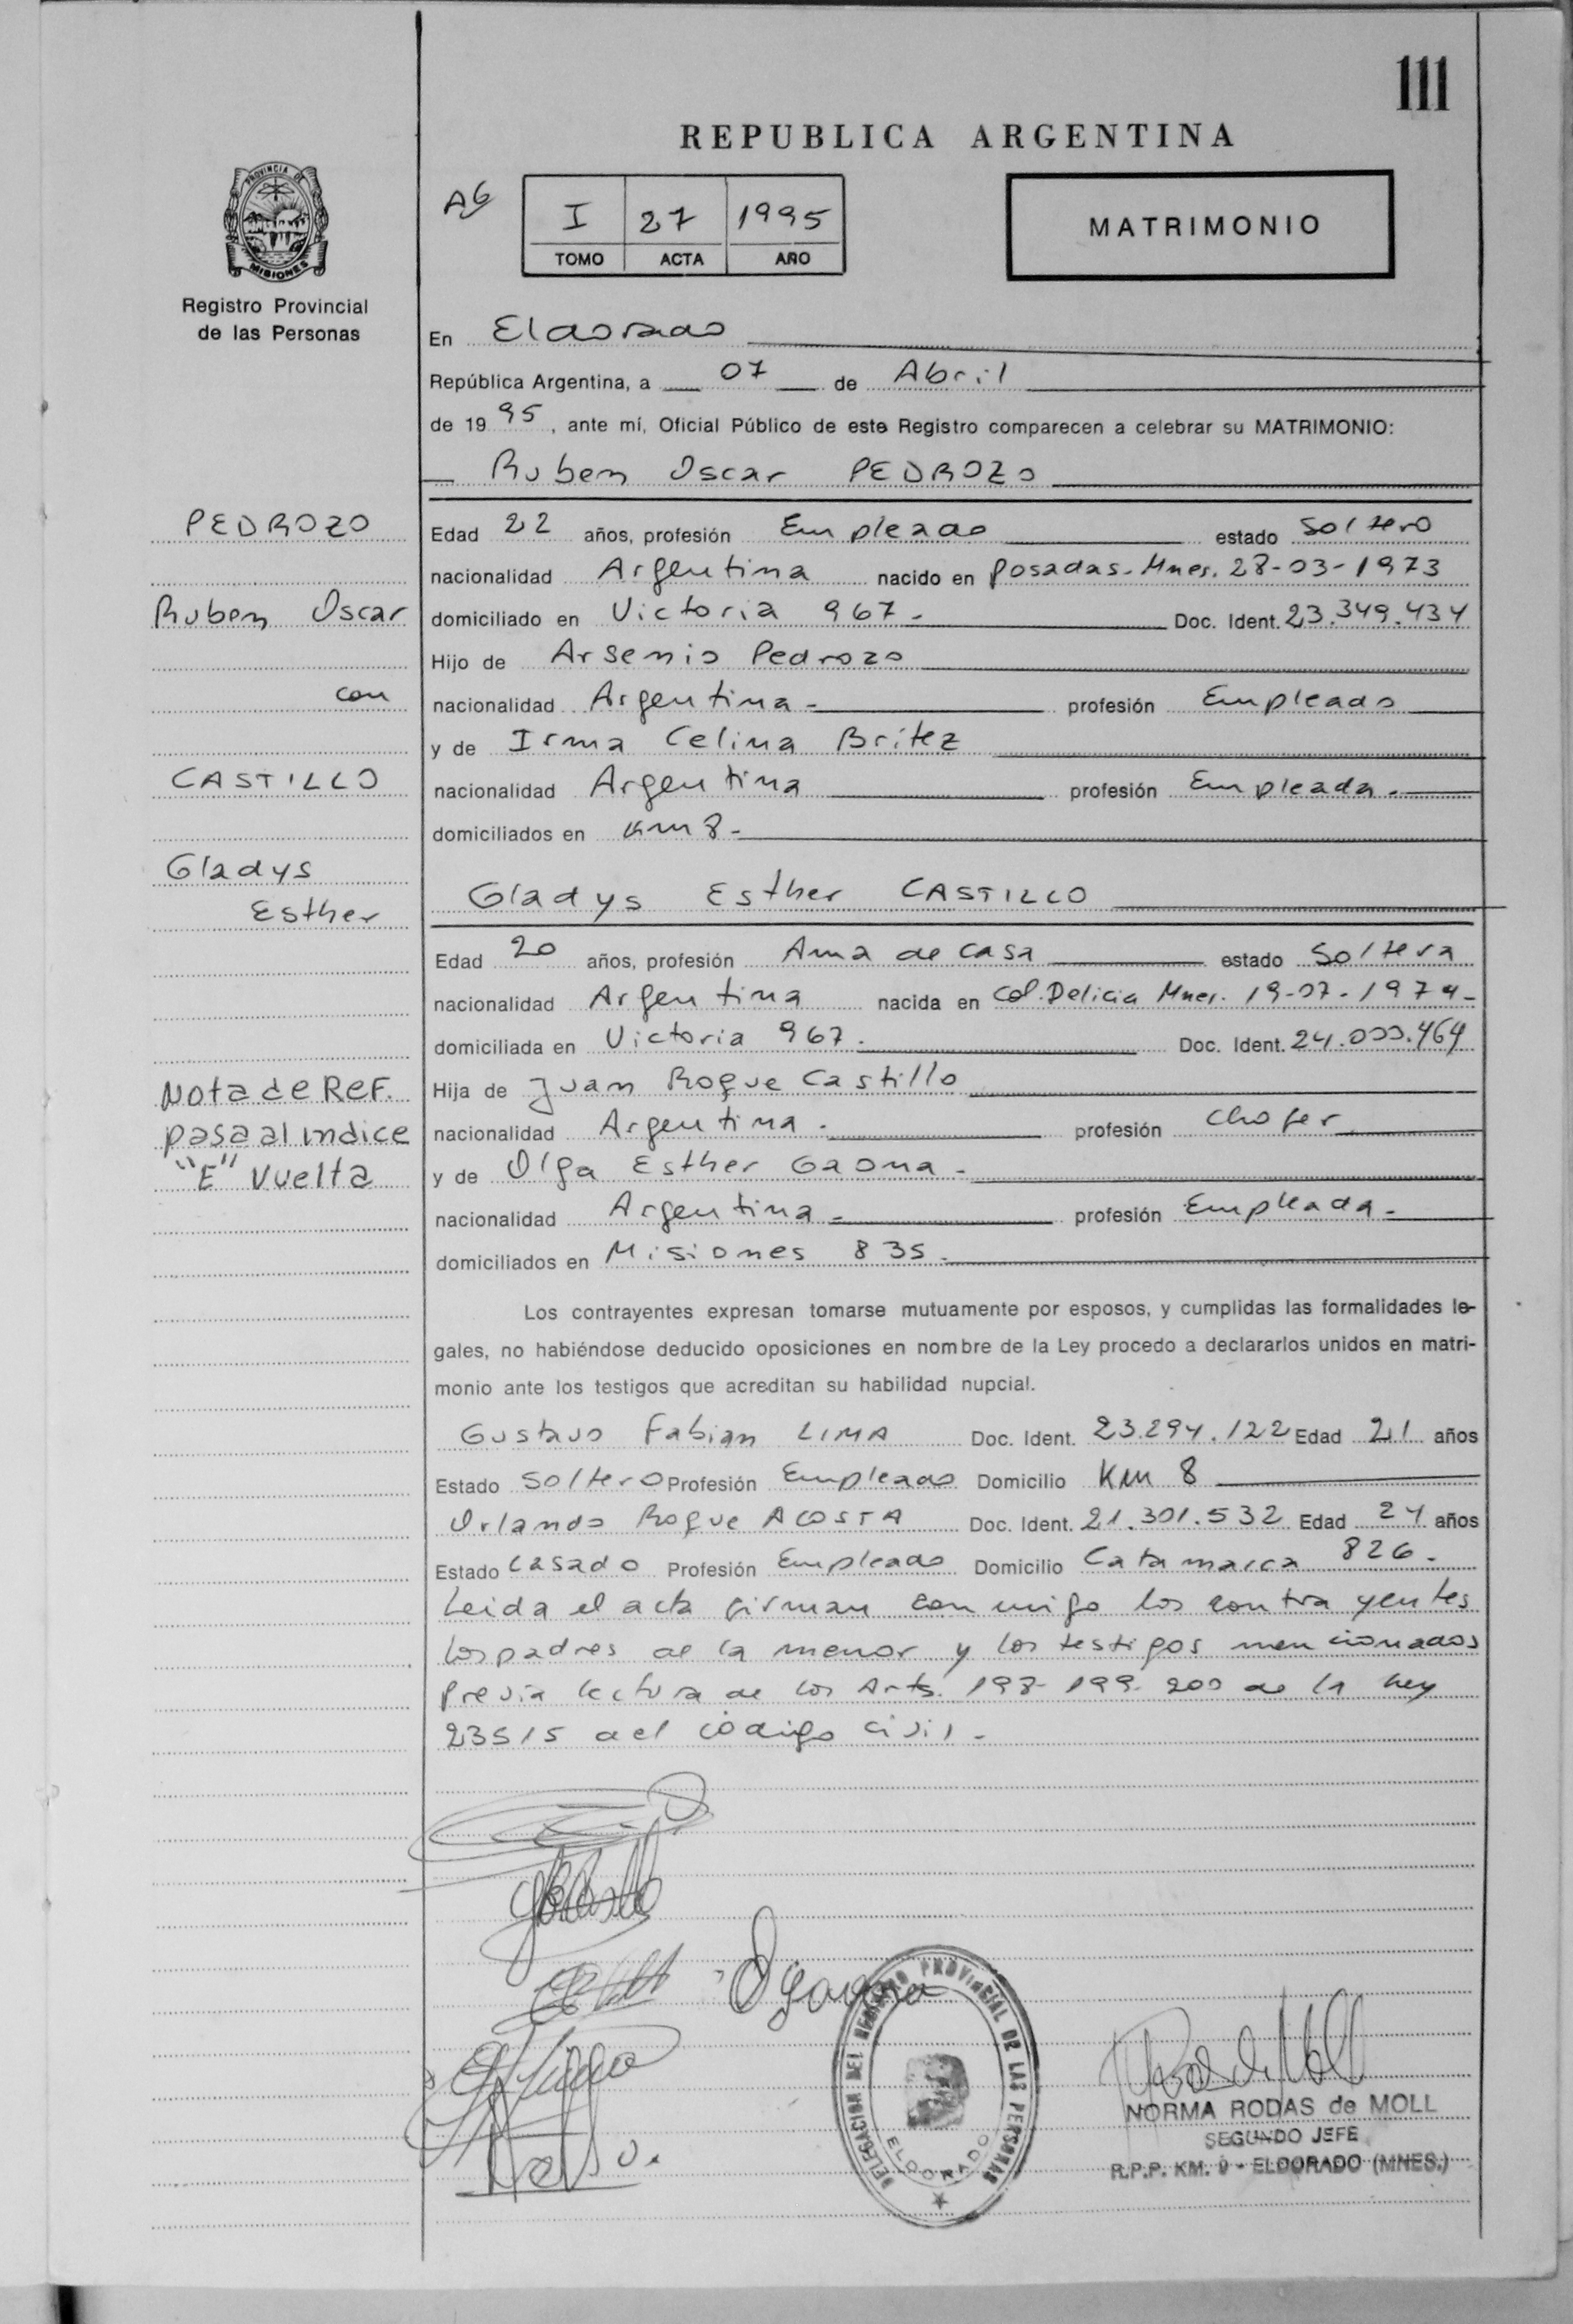 111
REPUBLICA ARGENTINA
PROVINCIA DE
MISIONES
Registro Provincial
de las Personas
I 27 1995
TOMO ACTA AÑO
MATRIMONIO
En Eldorado
República Argentina, a 07 de Abril
de 1995, ante mí, Oficial Público de este Registro comparecen a celebrar su MATRIMONIO:
Ruben Oscar PEDROZO
PEDROZO
Ruben Oscar
con
CASTILLO
Gladys
Esther
Nota de Ref.
pasa al indice
"E" Vuelta
Edad 22 años, profesión Empleado estado Soltero
nacionalidad Argentina nacido en Posadas-Mnes. 28-03-1973
domiciliado en Victoria 967- Doc. Ident. 23.349.434
Hijo de Arsenio Pedrozo
nacionalidad Argentina- profesión Empleado
y de Irma Celina Britez
nacionalidad Argentina profesión Empleada-
domiciliados en Km 8-
Gladys Esther CASTILLO
Edad 20 años, profesión Ama de casa estado Soltera
nacionalidad Argentina nacida en Col. Delicia Mnes. 19-07-1974-
domiciliada en Victoria 967. Doc. Ident. 24.000.464
Hija de Juan Roque Castillo
nacionalidad Argentina- profesión chofer
y de Olga Esther Gaona-
nacionalidad Argentina- profesión Empleada-
domiciliados en Misiones 835-
Los contrayentes expresan tomarse mutuamente por esposos, y cumplidas las formalidades le-
gales, no habiéndose deducido oposiciones en nombre de la Ley procedo a declararlos unidos en matri-
monio ante los testigos que acreditan su habilidad nupcial.
Gustavo Fabian LIMA Doc. Ident. 23.294.122 Edad 21 años
Estado Soltero Profesión Empleado Domicilio Km 8
Orlando Roque ACOSTA Doc. Ident. 21.301.532 Edad 24 años
Estado Casado Profesión Empleado Domicilio Catamarca 826-
Leida el acta firman conmigo los contrayentes
los padres de la menor y los testigos mencionados
Previa lectura de los Arts. 198-199-200 de la ley
23515 del codigo civil-
DELEGACION DEL REGISTRO PROVINCIAL DE LAS PERSONAS
ELDORADO
NORMA RODAS de MOLL
SEGUNDO JEFE
R.P.P. KM. 9 - ELDORADO (MNES.)